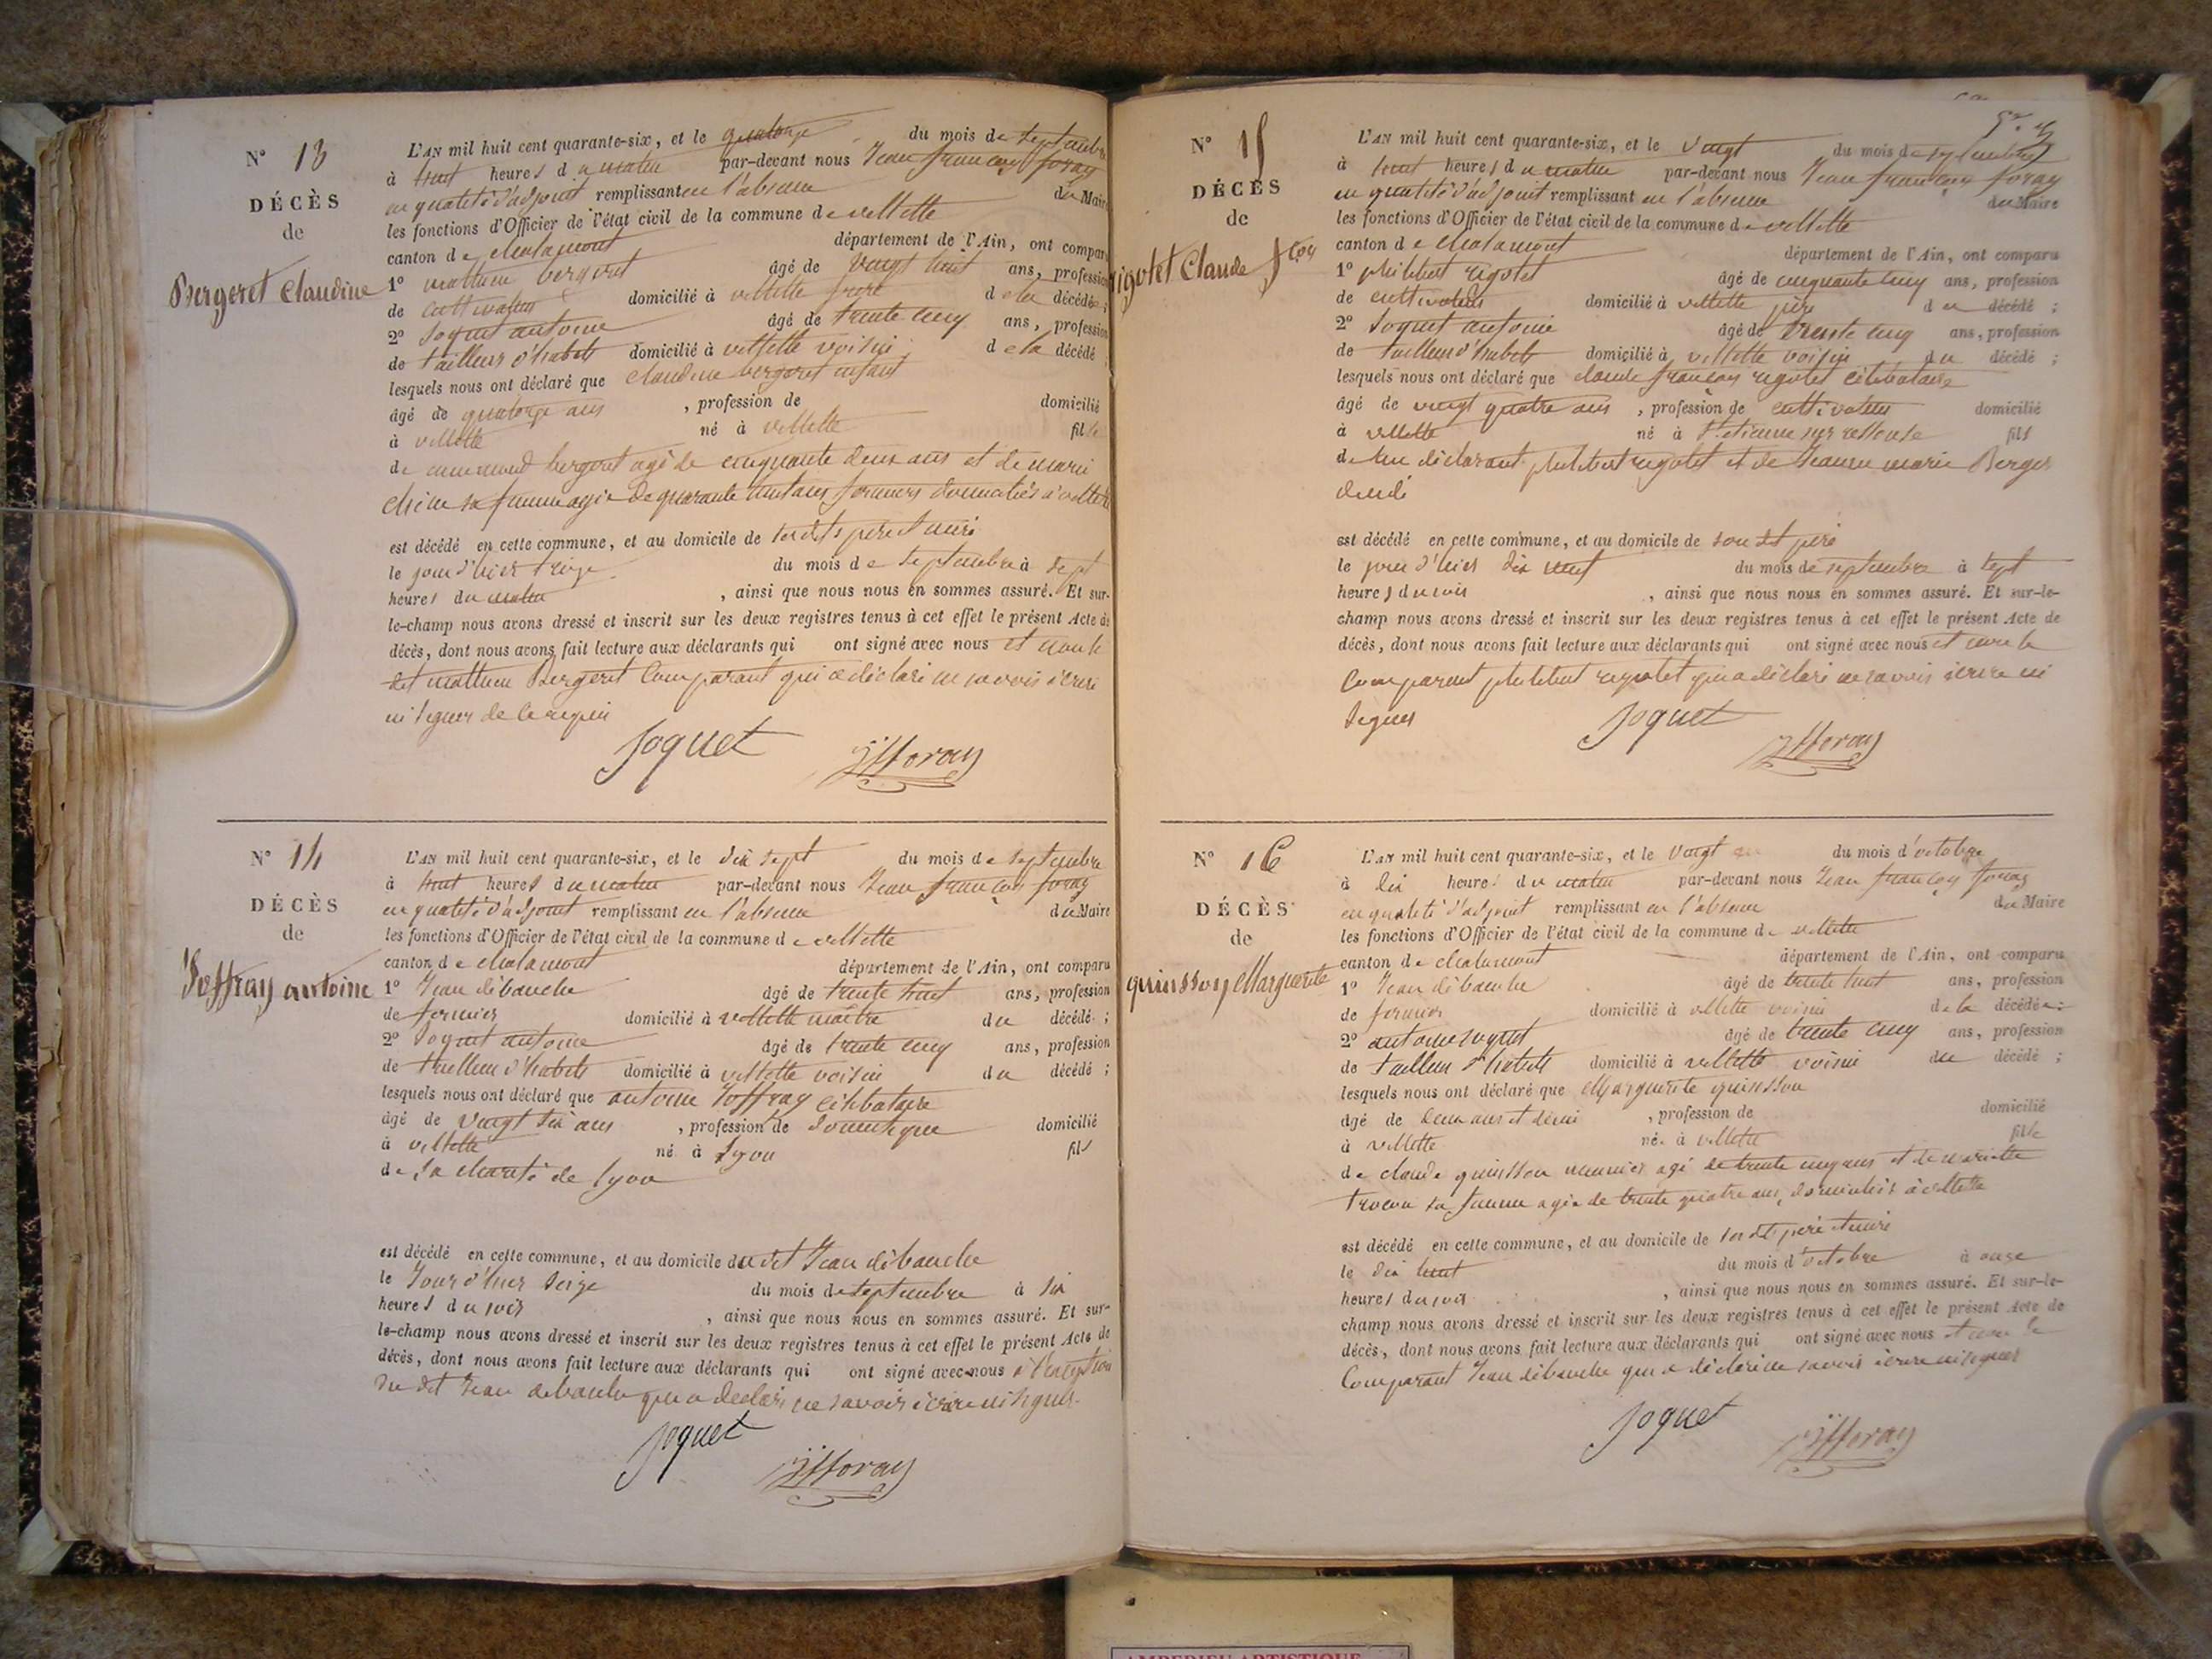 N° 13
DÉCÈS
de
Bergeret Claudine
L'AN mil huit cent quarante-six, et le quatorze du mois de septembre
à huit heures du matin par-devant nous Jean françois foray
en qualité d'adjoint remplissant en l'absence du Maire
les fonctions d'Officier de l'état civil de la commune de villette
canton de chalamont département de l'Ain, ont comparu
1° mathieu bergeret âgé de vingt huit ans, profession
de cultivateur domicilié à villette frère de la décédée ;
2° Joguet antoine âgé de trente cinq ans, profession
de tailleur d'habits domicilié à villette voisin de la décédé ;
lesquels nous ont déclaré que claudine bergeret enfant
âgé de quatorze ans , profession de domicilié
à villette né à villette fille
de bergeret agé de cinquante deux ans et de marie
sa femme agée de quarante huit ans fermiers domiciliés à villette
est décédé en cette commune, et au domicile de ses dits père et mère
le jour d'hier treize du mois de septembre à sept
heures du matin , ainsi que nous nous en sommes assuré. Et sur-
le-champ nous avons dressé et inscrit sur les deux registres tenus à cet effet le présent Acte de
décès, dont nous avons fait lecture aux déclarants qui ont signé avec nous et non le
dit mathieu Bergeret Comparant qui a déclaré ne savoir écrire
ni signer de ce requis
Joguet
JFforay
N° 14
DÉCÈS
de
Joffray antoine
L'AN mil huit cent quarante-six, et le dix sept du mois de septembre
à huit heures du matin par-devant nous Jean françois foray
en qualité d'adjoint remplissant en l'absence du Maire
les fonctions d'Officier de l'état civil de la commune de villette
canton de chalamont département de l'Ain, ont comparu
1° Jean débauche âgé de trente huit ans, profession
de fermier domicilié à villette maître du décédé ;
2° Joguet antoine âgé de trente cinq ans, profession
de tailleur d'habits domicilié à villette voisin du décédé ;
lesquels nous ont déclaré que antoine Joffray célibataire
âgé de vingt six ans , profession de domestique domicilié
à villette né à Lyon fils
de la charité de Lyon
est décédé en cette commune, et au domicile du dit Jean débauche
le Jour d'hier seize du mois de septembre à six
heures du soir , ainsi que nous nous en sommes assuré. Et sur-
le-champ nous avons dressé et inscrit sur les deux registres tenus à cet effet le présent Acte de
décès, dont nous avons fait lecture aux déclarants qui ont signé avec nous à l'exception
du dit Jean debauche qui a declaré ne savoir écrire ni signer.
Joguet
JFforay
N° 15
DÉCÈS
de
rigotet Claude fçois
L'AN mil huit cent quarante-six, et le vingt du mois de septembre
à huit heures du matin par-devant nous Jean françois foray
en qualité d'adjoint remplissant en l'absence du Maire
les fonctions d'Officier de l'état civil de la commune de villette
canton de chalamont département de l'Ain, ont comparu
1° philibert rigotet âgé de cinquante cinq ans, profession
de cultivateur domicilié à villette père du décédé ;
2° Joguet antoine âgé de trente cinq ans, profession
de tailleur d'habits domicilié à villette voisin du décédé ;
lesquels nous ont déclaré que claude françois rigotet célibataire
âgé de vingt quatre ans , profession de cultivateur domicilié
à villette né à St etienne sur fils
de déclarant philibert rigotet et de Jeanne marie Berger
est décédé en cette commune, et au domicile de son dit père
le jour d'hier dix neuf du mois de septembre à sept
heures du soir , ainsi que nous nous en sommes assuré. Et sur-le-
champ nous avons dressé et inscrit sur les deux registres tenus à cet effet le présent Acte de
décès, dont nous avons fait lecture aux déclarants qui ont signé avec nous et non le
Comparant philibert rigotet qui a déclaré ne savoir écrire ni
signer
Joguet
JFforay
N° 16
DÉCÈS
de
quinsson Marguerite
L'AN mil huit cent quarante-six, et le vingt du mois d'octobre
à dix heures du matin par-devant nous Jean françois foray
en qualité d'adjoint remplissant en l'absence du Maire
les fonctions d'Officier de l'état civil de la commune de villette
canton de chalamont département de l'Ain, ont comparu
1° Jean débauche âgé de trente huit ans, profession
de fermier domicilié à villette voisin de la décédée ;
2° antoine Joguet âgé de trente cinq ans, profession
de tailleur d'habits domicilié à villette voisin du décédé ;
lesquels nous ont déclaré que Marguerite quinsson
âgé de deux ans et demi , profession de domicilié
à villette née à villette fille
de claude quinsson meunier agé de trente cinq ans et de mariette
sa femme agée de trente quatre ans, domiciliés à villette
est décédé en cette commune, et au domicile de ses dits père et mère
le dix huit du mois d'octobre à onze
heures du soir , ainsi que nous nous en sommes assuré. Et sur-le-
champ nous avons dressé et inscrit sur les deux registres tenus à cet effet le présent Acte de
décès, dont nous avons fait lecture aux déclarants qui ont signé avec nous et non le
Comparant Jean débauche qui a déclaré ne savoir écrire ni signer
Joguet
JFforay
AMBERIEU ARTISTIQUE